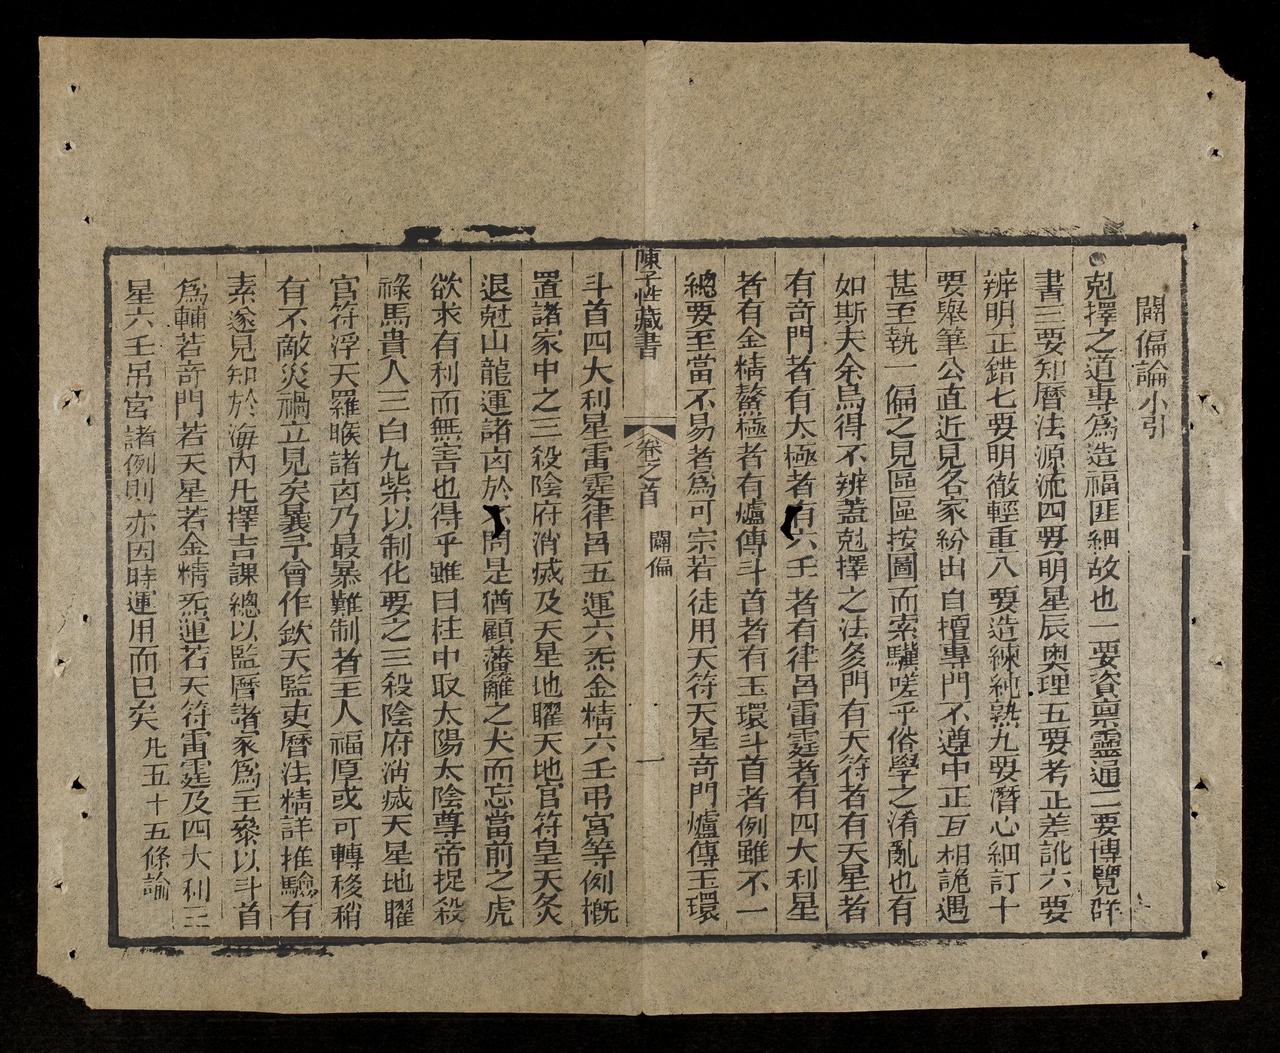 闢偏論小引
尅擇之道專爲造福匪細故也一要資稟靈通二要博覽群
書三要知曆法源流四要明星辰奧理五要考正差訛六要
辨明正錯七要明徹輕重八要造練純熟九要潛心細訂十
要舉筆公直近見各家紛出自檀專門不遵中正互相詭遇
甚至執一偏之見區區按圖而索驥嗟乎俗學之淆亂也有
如斯夫余烏得不辨蓋尅擇之法多門有天符者有天星者
有奇門者有太極者有六壬者有律呂雷霆者有四大利星
者有金精鰲極者有爐傳斗首者有玉環斗首者例雖不一
總要至當不易者爲可宗若徒用天符天星奇門爐傳玉環
陳子性藏書 卷之首 闢偏 一
斗首四大利星雷霆律呂五運六炁金精六壬弔宮等例槪
置諸家中之三殺陰府消滅及天星地曜天地官符皇天灸
退尅山龍運諸凶於不問是猶顧藩籬之犬而忘當前之虎
欲求有利而無害也得乎雖曰柱中取太陽太陰尊帝捉殺
祿馬貴人三白九紫以制化要之三殺陰府消滅天星地曜
官符浮天羅睺諸凶乃最暴難制者主人福厚或可轉移稍
有不敵災禍立見矣曩子曾作欽天監吏曆法精詳推驗有
素遂見知於海內凡擇吉課總以監曆諸家爲主叅以斗首
爲輔若奇門若天星若金精炁運若天符雷霆及四大利三
星六壬吊宮諸例則亦因時運用而已矣 凡五十五條論